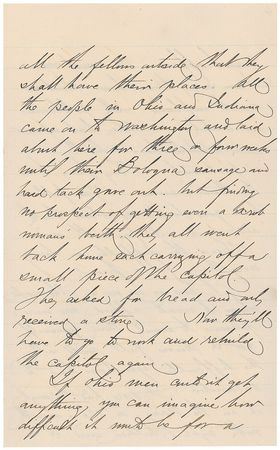 all the fellows outside that they
shall have their places. All
the people in Ohio and Indiana
came on to Washington and laid
about here for three or four weeks
until their Bologna sausage and
hard tack gave out. but finding
no prospect of getting even a
worth they all went
back home each carrying off a
small piece of the Capitol
They asked for bread and only
received a stone Now they'll
have to go to work and rebuild
the capitol again
If Ohio men can't get
anything you can imagine how
difficult it must be for a